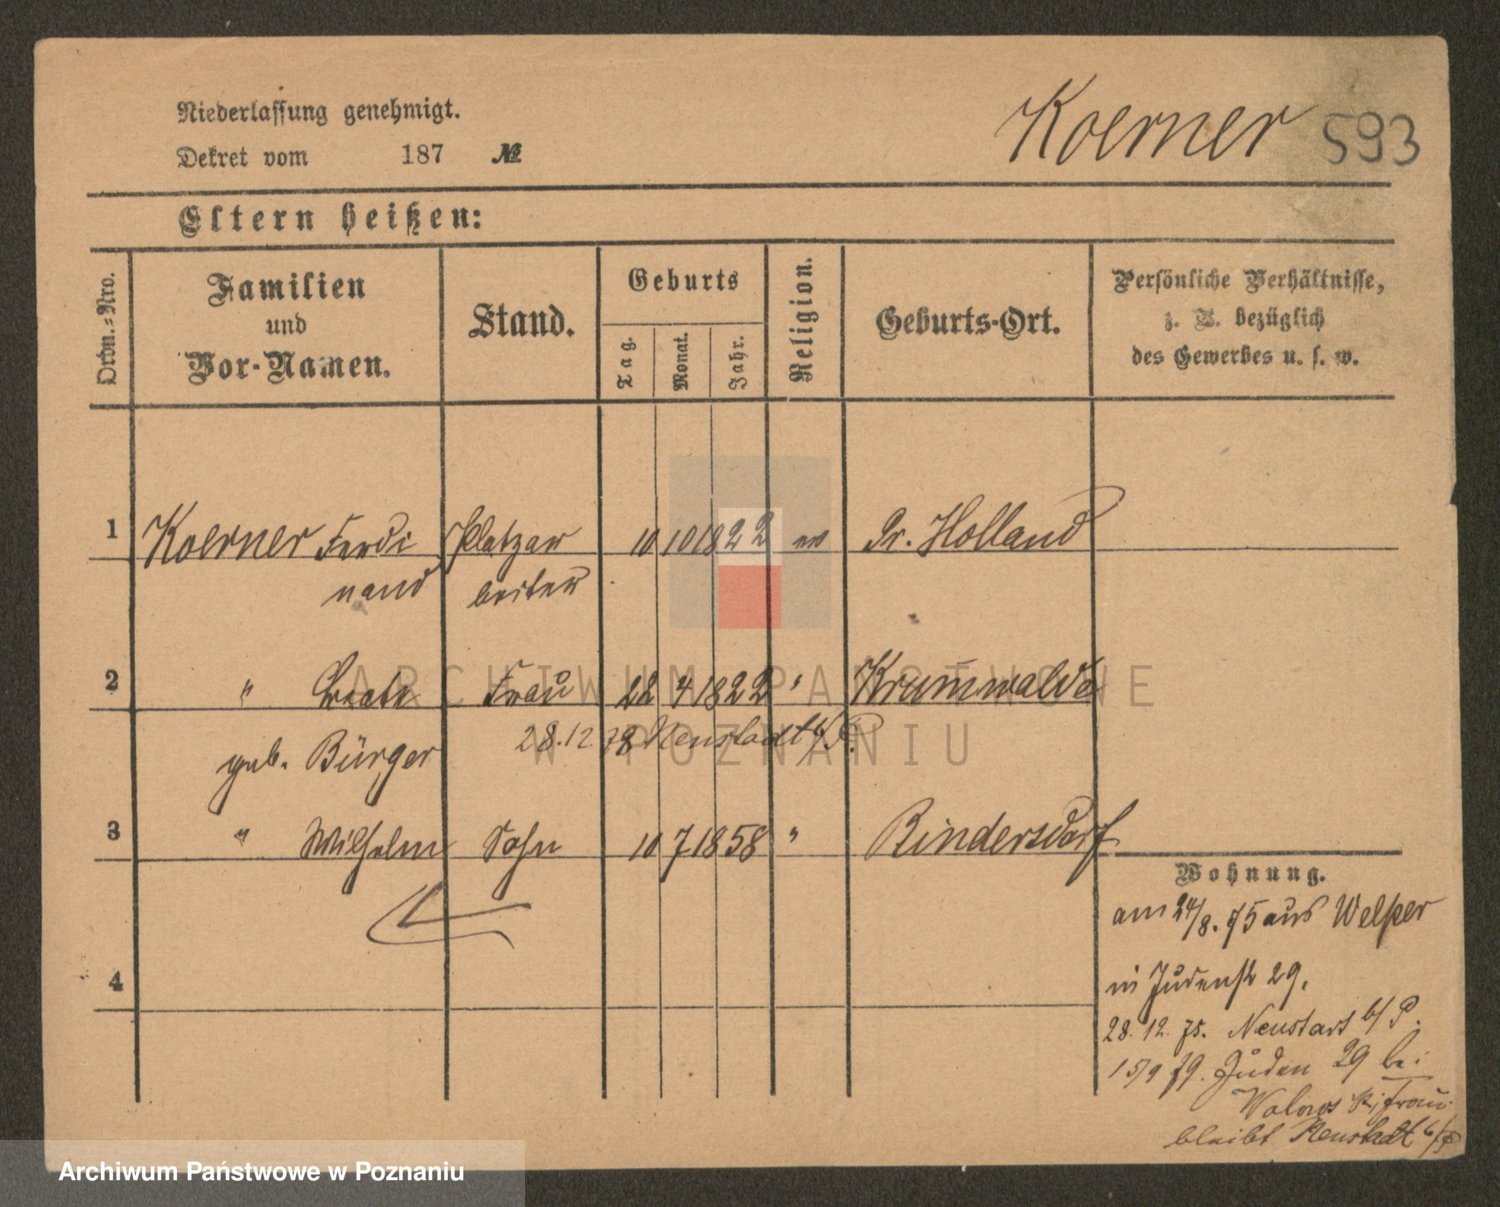 Niederlassung genehmigt.
Dekret vom 187 №
Koerner 593
Eltern heißen:
Ordn.-Nro.
Familien
und
Vor-Namen.
Stand.
Geburts
Tag.
Monat.
Jahr.
Religion.
Geburts-Ort.
Persönliche Verhältnisse,
z. B. bezüglich
des Gewerbes u. s. w.
1 Koerner Ferdi Platzar 10 10 1822 ev Pr. Holland
nand beiter
2 " Frau 22 4 1822 " Krumwalde
geb. Bürger 28.12 78 Neustadt b/P.
3 " Wilhelm Sohn 10 7 1858 " Rindersdorf
4
Wohnung.
am 24/8. 75 aus Welper
in Judenstr 29.
28. 12. 75. Neustadt b/ P.
15/9 79. Juden 29 bei
Frau
bleibt Neustadt b/P
ARCHIWUM PAŃSTWOWE
W POZNANIU
Archiwum Państwowe w Poznaniu